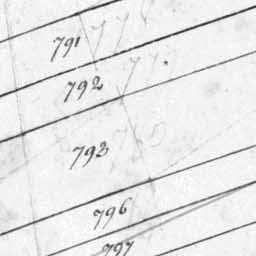 791
792
793
796
797